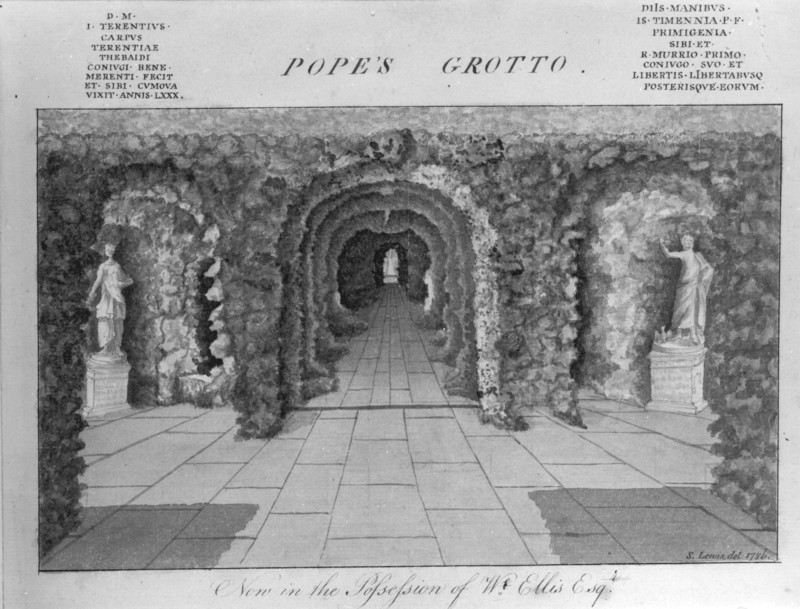 D · M ·
I · TERENTIVS ·
CARPVS
TERENTIAE
THEBAIDI
CONIVGI · BENE ·
MERENTI · FECIT
ET · SIBI · CVMQVA
VIXIT · ANNIS · LXXX ·
POPE'S GROTTO .
DIIS · MANIBVS ·
IS · TIMENNIA · P · F ·
PRIMIGENIA ·
SIBI · ET ·
R · MURRIO · PRIMO ·
CONIVGO · SVO · ET
LIBERTIS · LIBERTABVSQ
POSTERISQVE · EORVM ·
S. Lewis del. 1786.
Now in the Possession of Wm. Ellis Esqr.